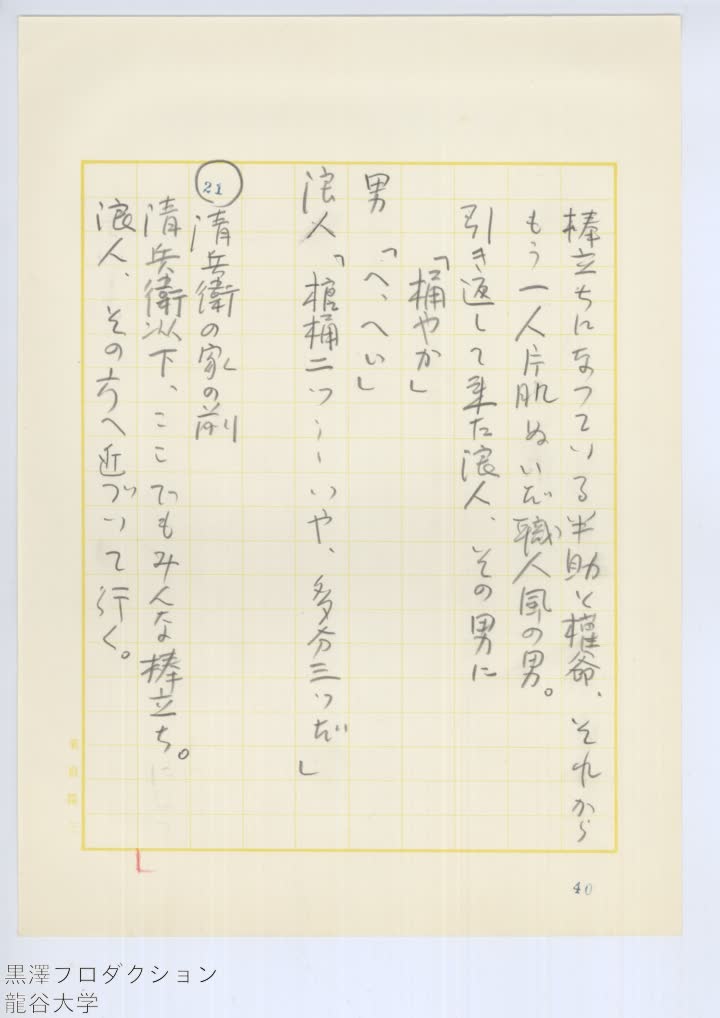 棒立ちになつている半助と権爺、それから
もう一人片肌ぬいだ職人風の男。
引き返して来た浪人、その男に
「桶やか」
男「へ、へい」
浪人「棺桶二つ……いや、多分三つだ」
21 清兵衛の家の前
清兵衛以下、ここでもみんな棒立ち。
浪人、その方へ近づいて行く。
40
黒澤プロダクション
龍谷大学